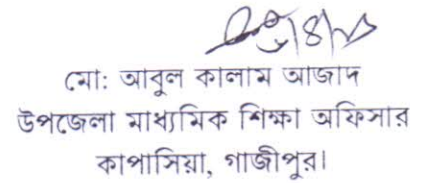 মো: আবুল কালাম আজাদ
উপজেলা মাধ্যমিক শিক্ষা অফিসার
কাপাসিয়া, গাজীপুর।